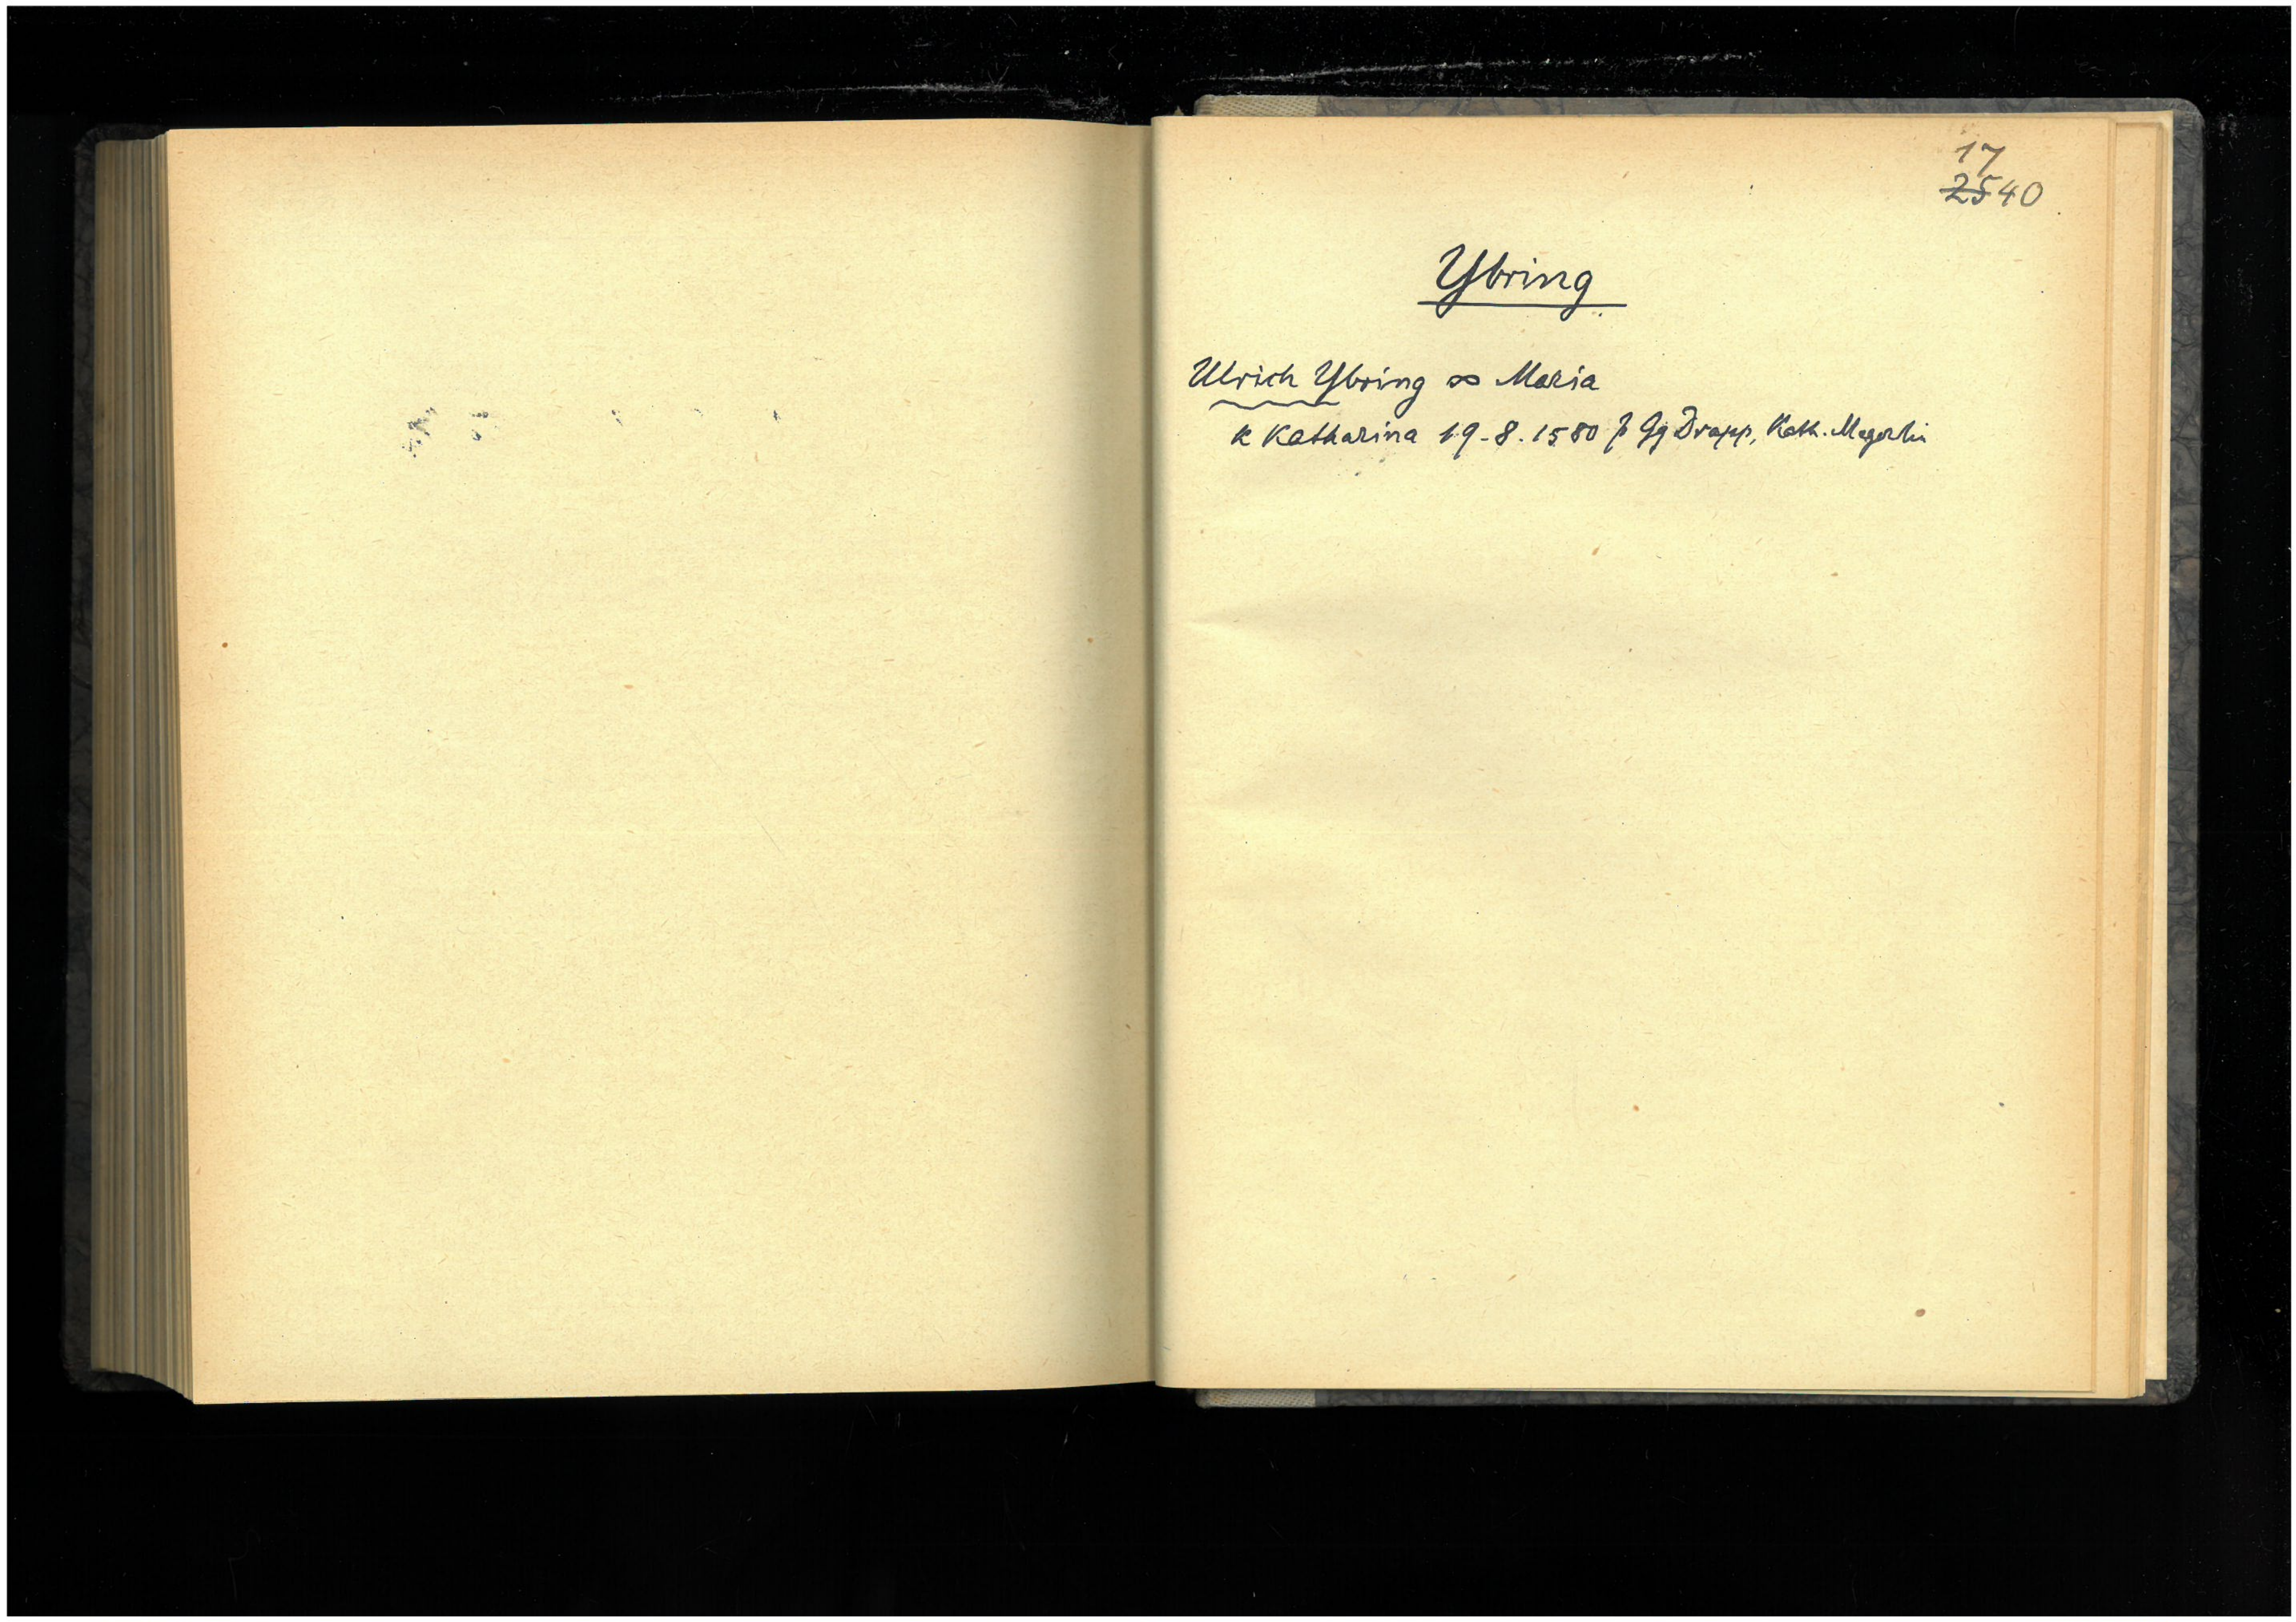 17
2540
Ybring
Ulrich Ybring ∞ Maria
k Katharina 19.8.1580 p Gg Drapp, Kath.